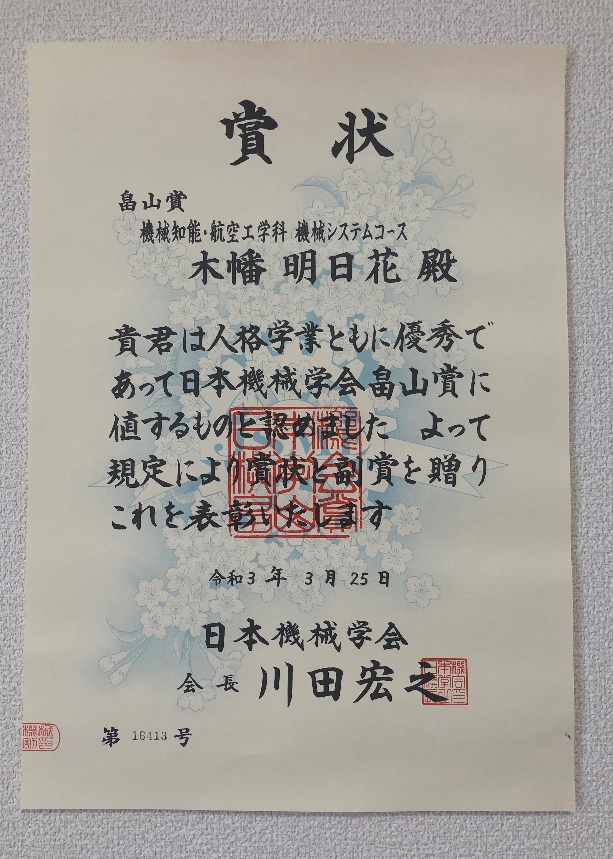 賞状
畠山賞
機械知能・航空工学科 機械システムコース
木幡 明日花 殿
貴君は人格学業ともに優秀で
あって日本機械学会畠山賞に
値するものと認めました よって
規定により賞状と副賞を贈り
これを表彰いたします
令和3年 3月25日
日本機械学会
会長 川田宏之
第 16413 号